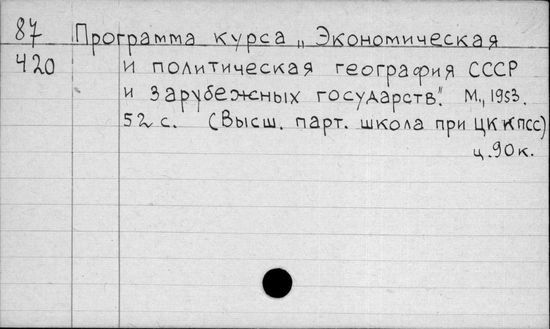 87 Программа курса „Экономическая
420 и политическая география СССР
и зарубежных государств". М., 1953.
52 с. (Высш. парт. школа при ЦК КПСС)
ц. 90 к.